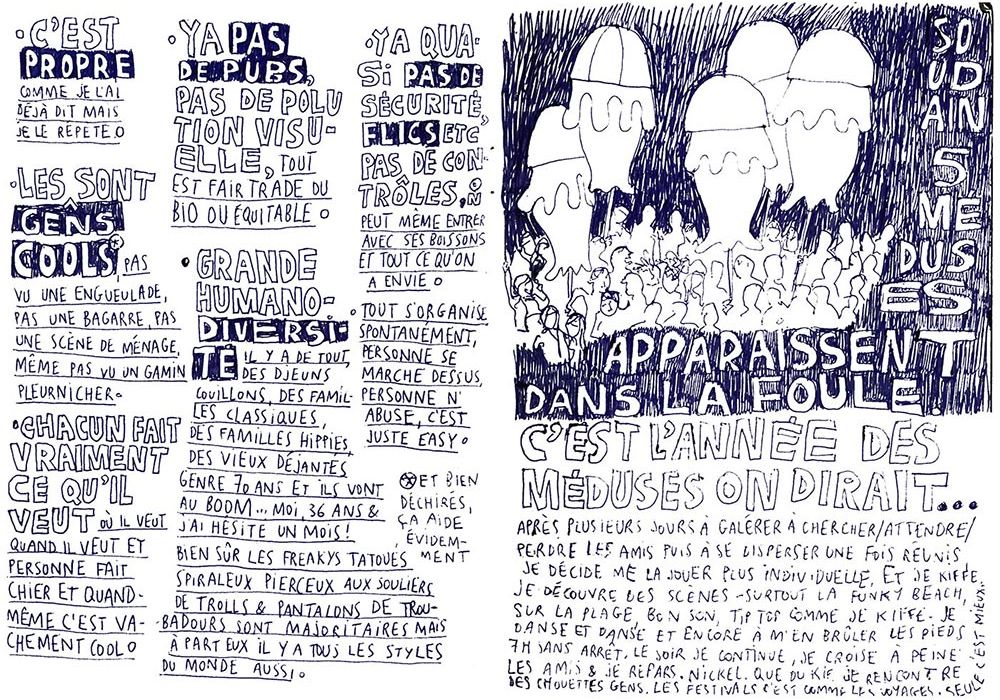 ·C'EST
PROPRE
COMME JE L'AI
DÉJÀ DIT MAIS
JE LE RÉPÈTE.
·LES SONT
GENS
COOLS* PAS
VU UNE ENGUEULADE,
PAS UNE BAGARRE, PAS
UNE SCÈNE DE MÉNAGE,
MÊME PAS VU UN GAMIN
PLEURNICHER.
·CHACUN FAIT
VRAIMENT
CE QU'IL
VEUT OÙ IL VEUT
QUAND IL VEUT ET
PERSONNE FAIT
CHIER ET QUAND-
MÊME C'EST VA-
CHEMENT COOL.
·YA PAS
DE PUBS,
PAS DE POLU
TION VISU-
ELLE, TOUT
EST FAIR TRADE DU
BIO OU ÉQUITABLE.
·GRANDE
HUMANO-
DIVERSI-
TÉ IL Y A DE TOUT,
DES DJEUNS
COUILLONS, DES FAMIL-
LES CLASSIQUES,
DES FAMILLES HIPPIES,
DES VIEUX DÉJANTÉS
GENRE 70 ANS ET ILS VONT
AU BOOM... MOI, 36 ANS &
J'AI HÉSITÉ UN MOIS!
BIEN SÛR LES FREAKYS TATOUÉS
SPIRALEUX PIERCEUX AUX SOULIERS
DE TROLLS & PANTALONS DE TROU-
BADOURS SONT MAJORITAIRES MAIS
À PART EUX IL Y A TOUS LES STYLES
DU MONDE AUSSI.
·YA QUA-
SI PAS DE
SÉCURITÉ,
FLICS ETC
PAS DE CON-
TRÔLES, ON
PEUT MÊME ENTRER
AVEC SES BOISSONS
ET TOUT CE QU'ON
A ENVIE.
TOUT S'ORGANISE
SPONTANÉMENT,
PERSONNE SE
MARCHE DESSUS,
PERSONNE N'
ABUSE, C'EST
JUSTE EASY.
*ET BIEN
DÉCHIRÉS,
ÇA AIDE
ÉVIDEM-
MENT
SO
UD
AIN
5
ME
DUS
ES
APPARAISSENT
DANS LA FOULE.
C'EST L'ANNÉE DES
MÉDUSES ON DIRAIT...
APRÈS PLUSIEURS JOURS À GALÉRER À CHERCHER/ATTENDRE/
PERDRE LES AMIS PUIS À SE DISPERSER UNE FOIS RÉUNIS
JE DÉCIDE ME LA JOUER PLUS INDIVIDUELLE, ET JE KIFFE.
JE DÉCOUVRE DES SCÈNES - SURTOUT LA FUNKY BEACH,
SUR LA PLAGE, BON SON, TIP TOP COMME JE KIFFE. JE
DANSE ET DANSE ET ENCORE À M'EN BRÛLER LES PIEDS
7H SANS ARRÊT. LE SOIR JE CONTINUE, JE CROISE À PEINE
LES AMIS & JE REPARS. NICKEL. QUE DU KIF. JE RENCONTRE
DES CHOUETTES GENS. LES FESTIVALS C'EST COMME LES VOYAGES. SEULE C'EST MIEUX.